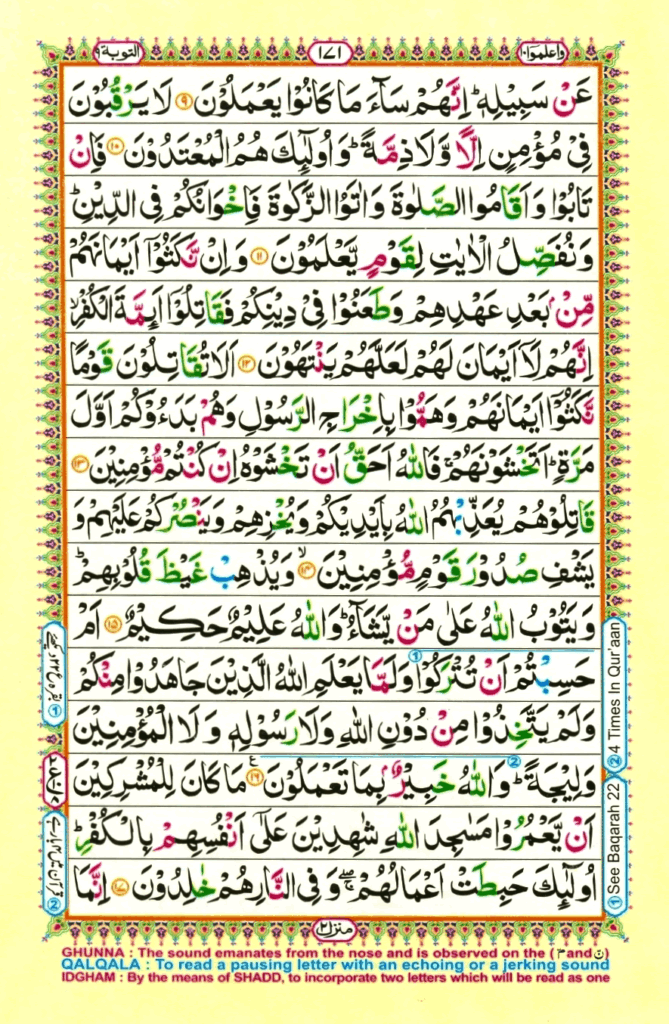 واعلموا ١٠
١٧١
التوبة ٩
عَنْ سَبِيْلِهٖ ؕ اِنَّهُمْ سَآءَ مَا كَانُوْا يَعْمَلُوْنَ ۹ لَا يَرْقُبُوْنَ
فِيْ مُؤْمِنٍ اِلًّا وَّلَا ذِمَّةً ؕ وَاُولٰٓئِكَ هُمُ الْمُعْتَدُوْنَ ۱۰ فَاِنْ
تَابُوْا وَاَقَامُوا الصَّلٰوةَ وَاٰتَوُا الزَّكٰوةَ فَاِخْوَانُكُمْ فِي الدِّيْنِ ؕ
وَنُفَصِّلُ الْاٰيٰتِ لِقَوْمٍ يَّعْلَمُوْنَ ۱۱ وَاِنْ نَّكَثُوْٓا اَيْمَانَهُمْ
مِّنْۢ بَعْدِ عَهْدِهِمْ وَطَعَنُوْا فِيْ دِيْنِكُمْ فَقَاتِلُوْٓا اَئِمَّةَ الْكُفْرِ ۙ
اِنَّهُمْ لَآ اَيْمَانَ لَهُمْ لَعَلَّهُمْ يَنْتَهُوْنَ ۱۲ اَلَا تُقَاتِلُوْنَ قَوْمًا
نَّكَثُوْٓا اَيْمَانَهُمْ وَهَمُّوْا بِاِخْرَاجِ الرَّسُوْلِ وَهُمْ بَدَءُوْكُمْ اَوَّلَ
مَرَّةٍ ؕ اَتَخْشَوْنَهُمْ ۚ فَاللّٰهُ اَحَقُّ اَنْ تَخْشَوْهُ اِنْ كُنْتُمْ مُّؤْمِنِيْنَ ۱۳
قَاتِلُوْهُمْ يُعَذِّبْهُمُ اللّٰهُ بِاَيْدِيْكُمْ وَيُخْزِهِمْ وَيَنْصُرْكُمْ عَلَيْهِمْ وَ
يَشْفِ صُدُوْرَ قَوْمٍ مُّؤْمِنِيْنَ ۙ ۱۴ وَيُذْهِبْ غَيْظَ قُلُوْبِهِمْ ؕ
وَيَتُوْبُ اللّٰهُ عَلٰى مَنْ يَّشَآءُ ؕ وَاللّٰهُ عَلِيْمٌ حَكِيْمٌ ۱۵ اَمْ
حَسِبْتُمْ اَنْ تُتْرَكُوْا وَلَمَّا يَعْلَمِ اللّٰهُ الَّذِيْنَ جَاهَدُوْا مِنْكُمْ
وَلَمْ يَتَّخِذُوْا مِنْ دُوْنِ اللّٰهِ وَلَا رَسُوْلِهٖ وَلَا الْمُؤْمِنِيْنَ
وَلِيْجَةً ؕ وَاللّٰهُ خَبِيْرٌۢ بِمَا تَعْمَلُوْنَ ۱۶ مَا كَانَ لِلْمُشْرِكِيْنَ
اَنْ يَّعْمُرُوْا مَسٰجِدَ اللّٰهِ شٰهِدِيْنَ عَلٰٓى اَنْفُسِهِمْ بِالْكُفْرِ ؕ
اُولٰٓئِكَ حَبِطَتْ اَعْمَالُهُمْ ۖ وَفِي النَّارِ هُمْ خٰلِدُوْنَ ۱۷ اِنَّمَا
② 4 Times In Qur'aan
① See Baqarah 22
منزل ٢
GHUNNA : The sound emanates from the nose and is observed on the ( مّ and نّ )
QALQALA : To read a pausing letter with an echoing or a jerking sound
IDGHAM : By the means of SHADD, to incorporate two letters which will be read as one